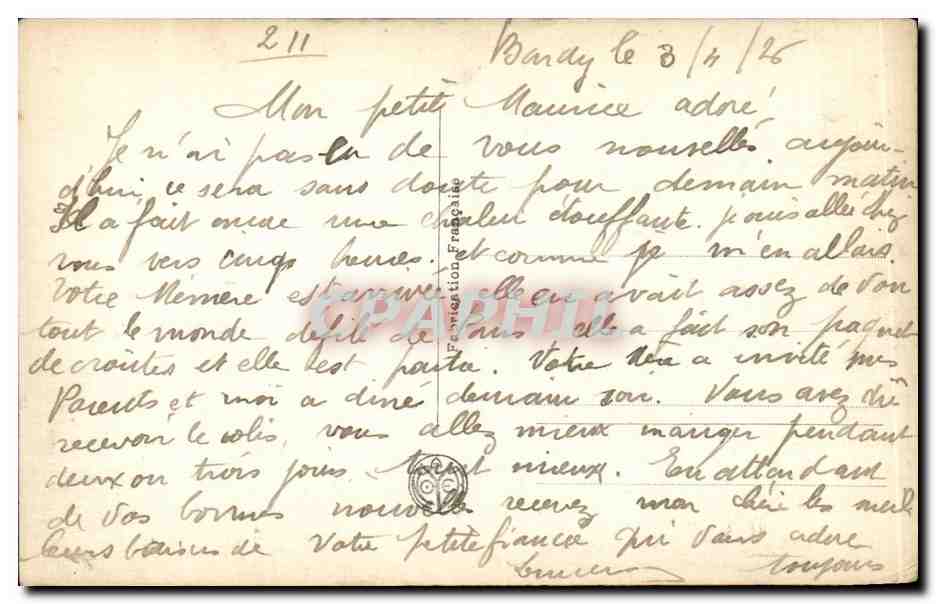 211 Bardy le 3/4/26
Mon petit Maurice adoré,
Je n'ai pas eu de vous nouvelles aujour-
d'hui, ce sera sans doute pour demain matin
Il a fait encore une chaleur étouffante. j'ouis allée chez
vous vers cinqs heures. et comme je m'en allais.
Votre Mémère est arrivée, elle en avait assez de
tout le monde défilé de elle a fait son paquet
de croûtes et elle est partie. Votre a invité mes
Parents et moi a diné demain soir. Vous avez dû
recevoir le colis, vous allez mieux manger pendant
deux ou trois jours, tant mieux. En attendant
de vos bonnes nouvelles recevez mon chéri les meil
leurs baisers de votre petite fiancée qui vous adore
toujours
Fabrication Française
CPAPHIL